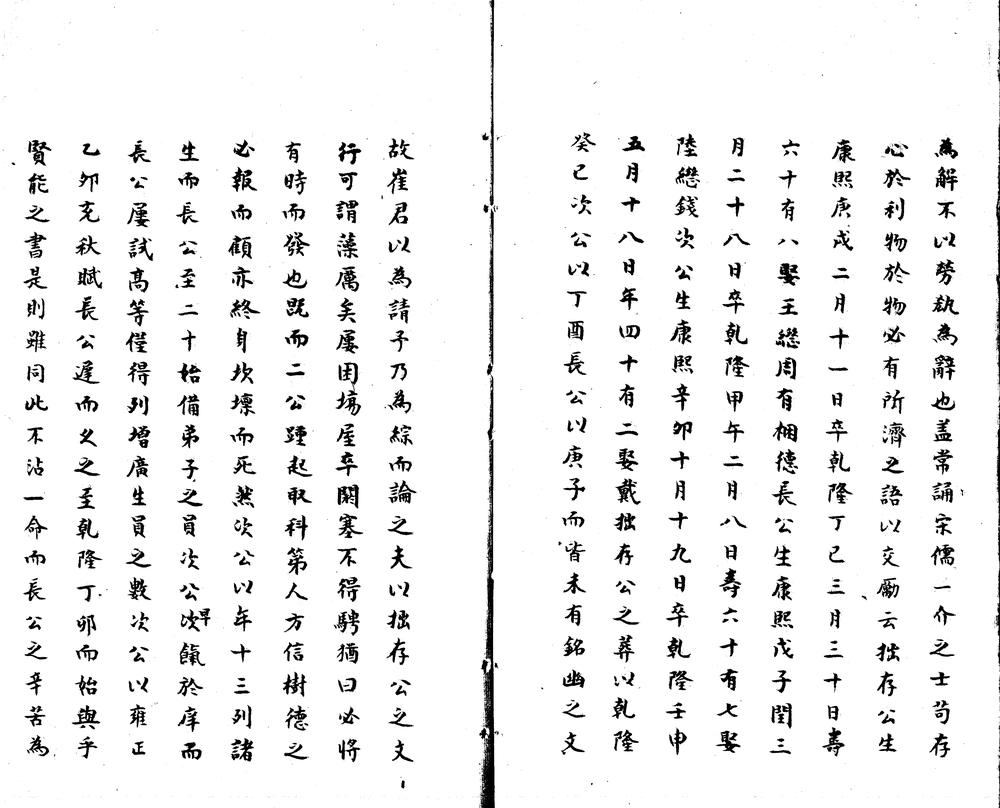 為解不以勞勩為辭也盖常誦宋儒一介之士苟存
心於利物於物必有所濟之語以交勵云拙存公生
康熙庚戌二月十一日卒乾隆丁巳三月三十日壽
六十有八娶王繼周有梱德長公生康熙戊子閏三
月二十八日卒乾隆甲午二月八日壽六十有七娶
陸繼錢次公生康熙辛卯十月十九日卒乾隆壬申
五月十八日年四十有二娶戴拙存公之葬以乾隆
癸已次公以丁酉長公以庚子而皆未有銘幽之文
故崔君以為請予乃為綜而論之夫以拙存公之文
行可謂藻厲矣屢困塲屋卒閼塞不得騁猶曰必將
有時而發也旣而二公踵起取科第人方信樹德之
必報而顧亦終身坎壈而死然次公以年十三列諸
生而長公至二十始備弟子之員次公早次餼於庠而
長公屢試高等僅得列增廣生員之數次公以雍正
乙卯充秋賦長公遲而久之至乾隆丁卯而始與乎
賢能之書是則雖同此不沾一命而長公之辛苦為